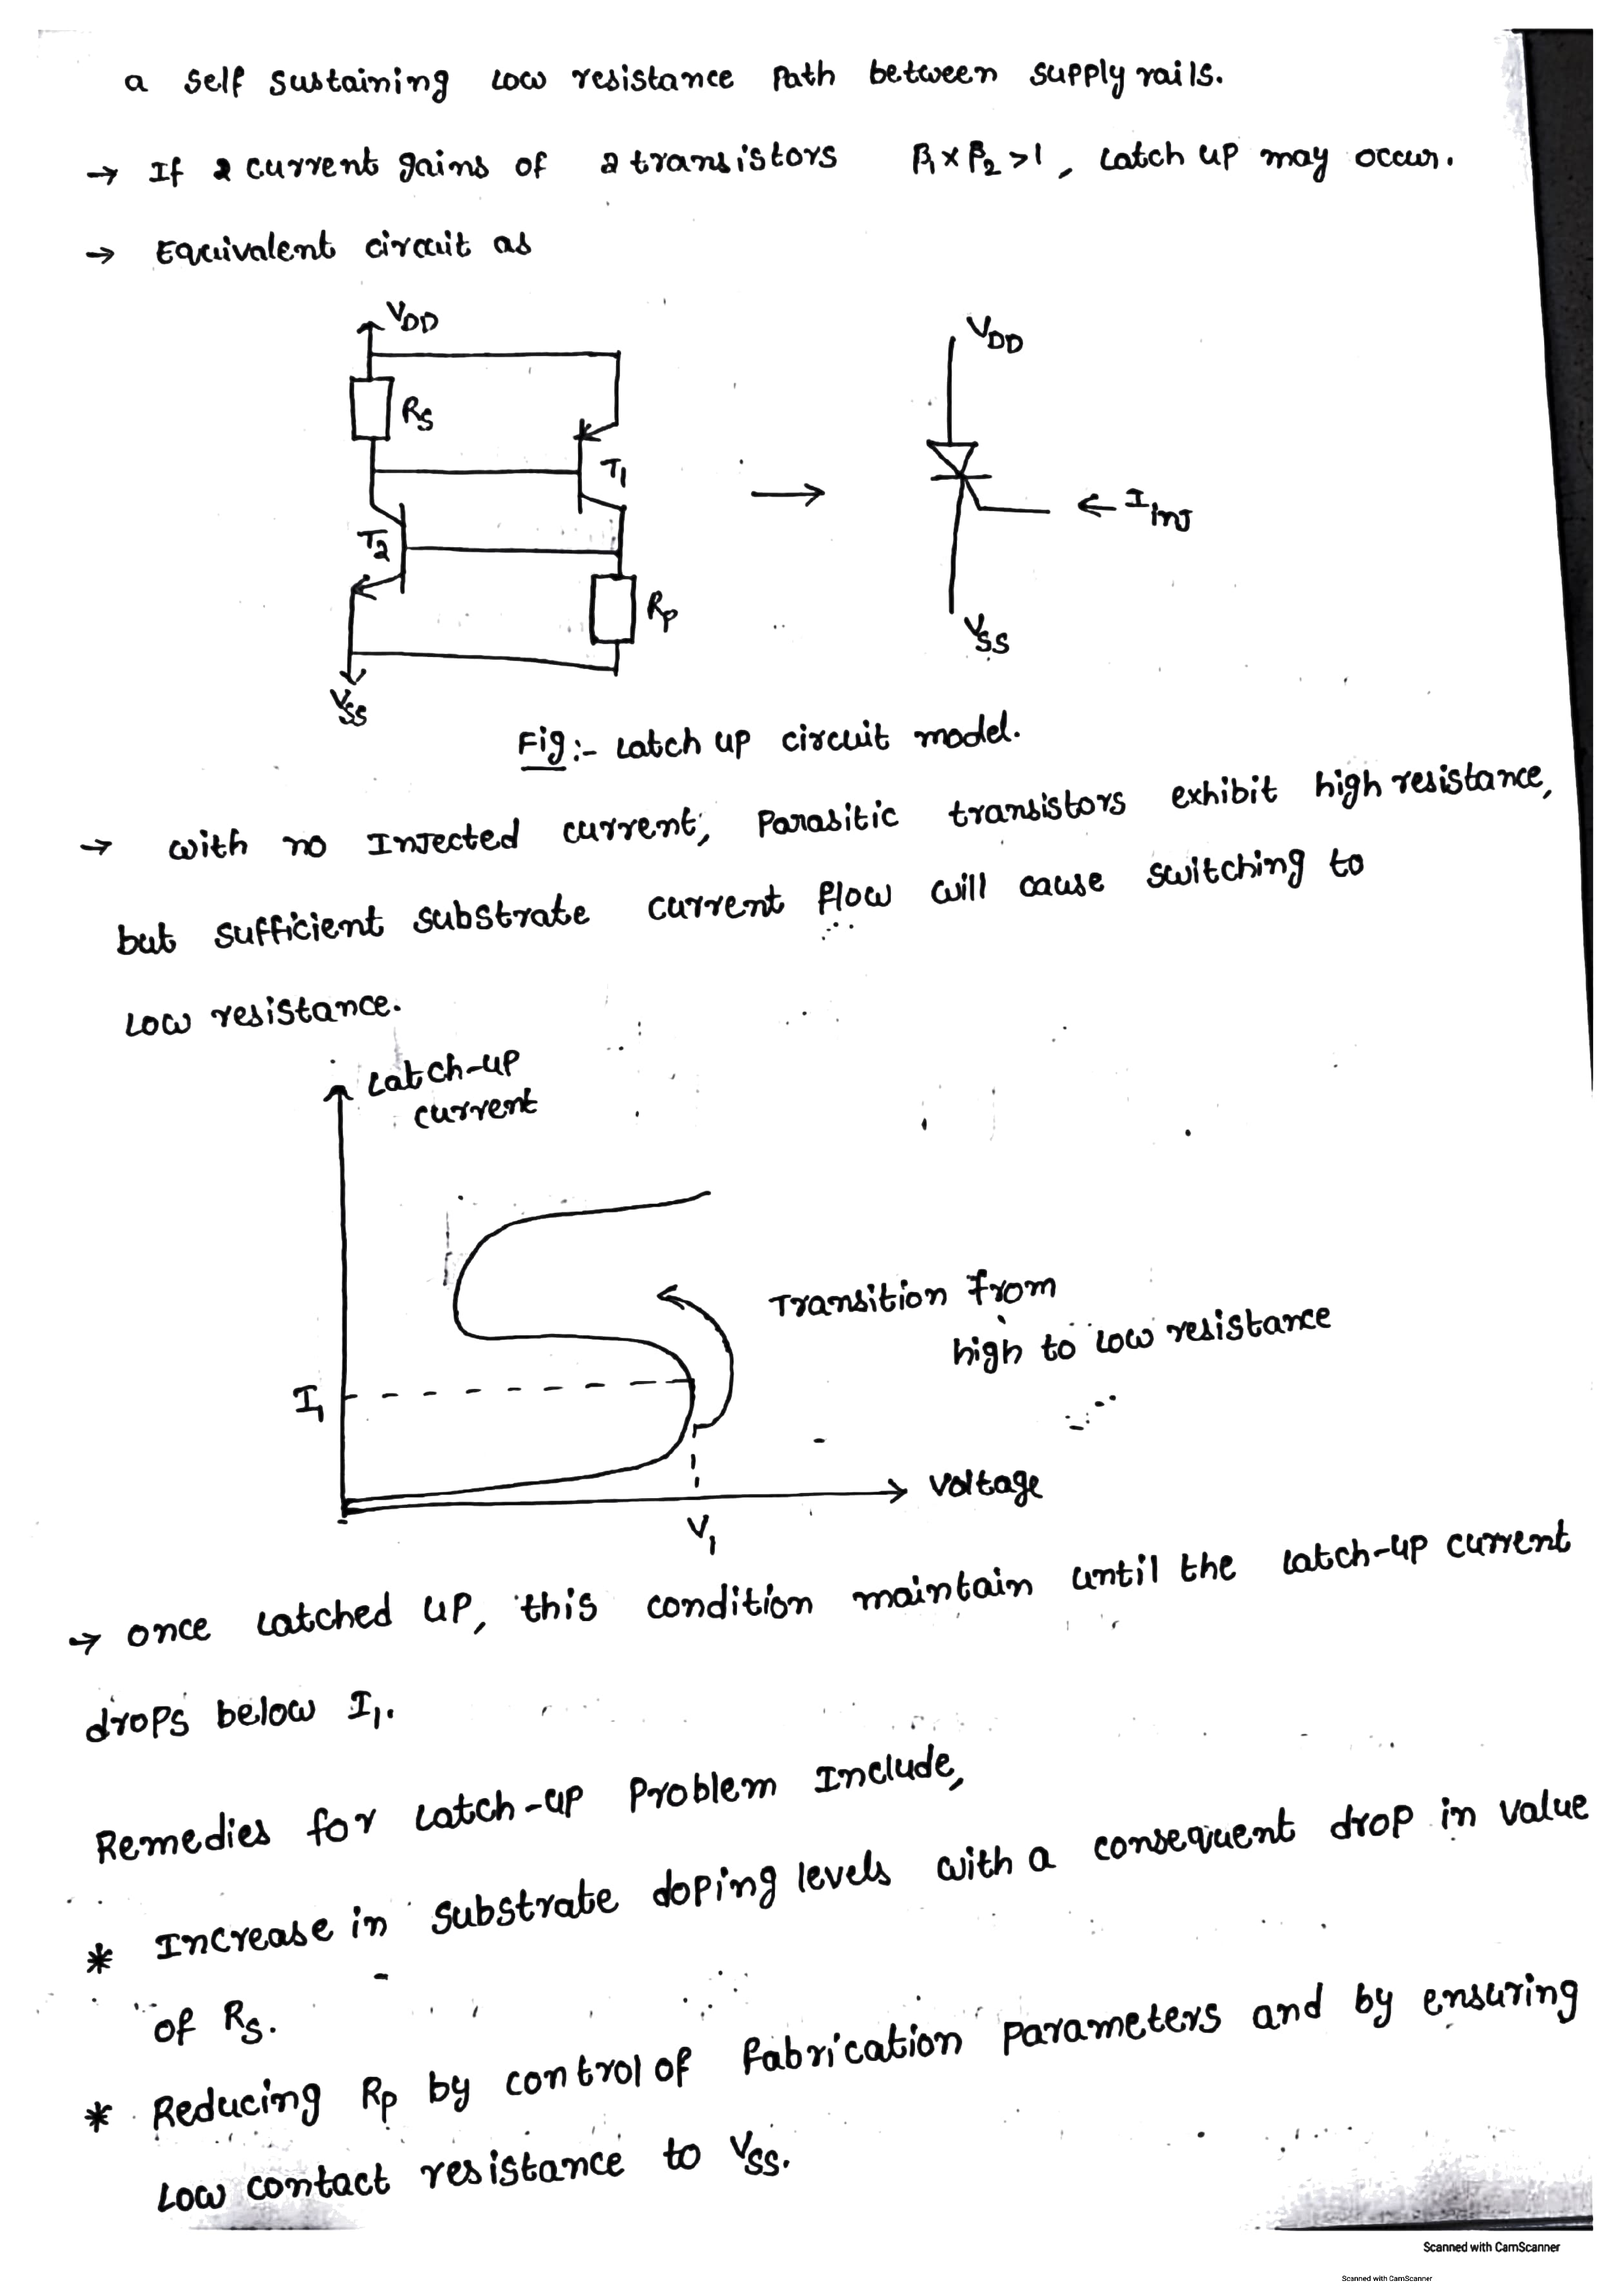 a self sustaining low resistance path between supply rails.
→ If 2 current gains of 2 transistors β₁ x β₂ >1, latch up may occur.
→ Equivalent circuit as
VDD
VDD
Rs
T₁
← I INJ
T₂
Rp
VSS
VSS
Fig:- latch up circuit model.
→ with no Injected current, parasitic transistors exhibit high resistance,
but sufficient substrate current flow will cause switching to
low resistance.
Latch-up
current
Transition from
high to low resistance
I₁
voltage
V₁
→ once latched up, this condition maintain until the latch-up current
drops below I₁.
Remedies for latch-up problem Include,
* Increase in substrate doping levels with a consequent drop in value
of Rs.
* Reducing Rp by control of fabrication parameters and by ensuring
low contact resistance to VSS.
Scanned with CamScanner
Scanned with CamScanner